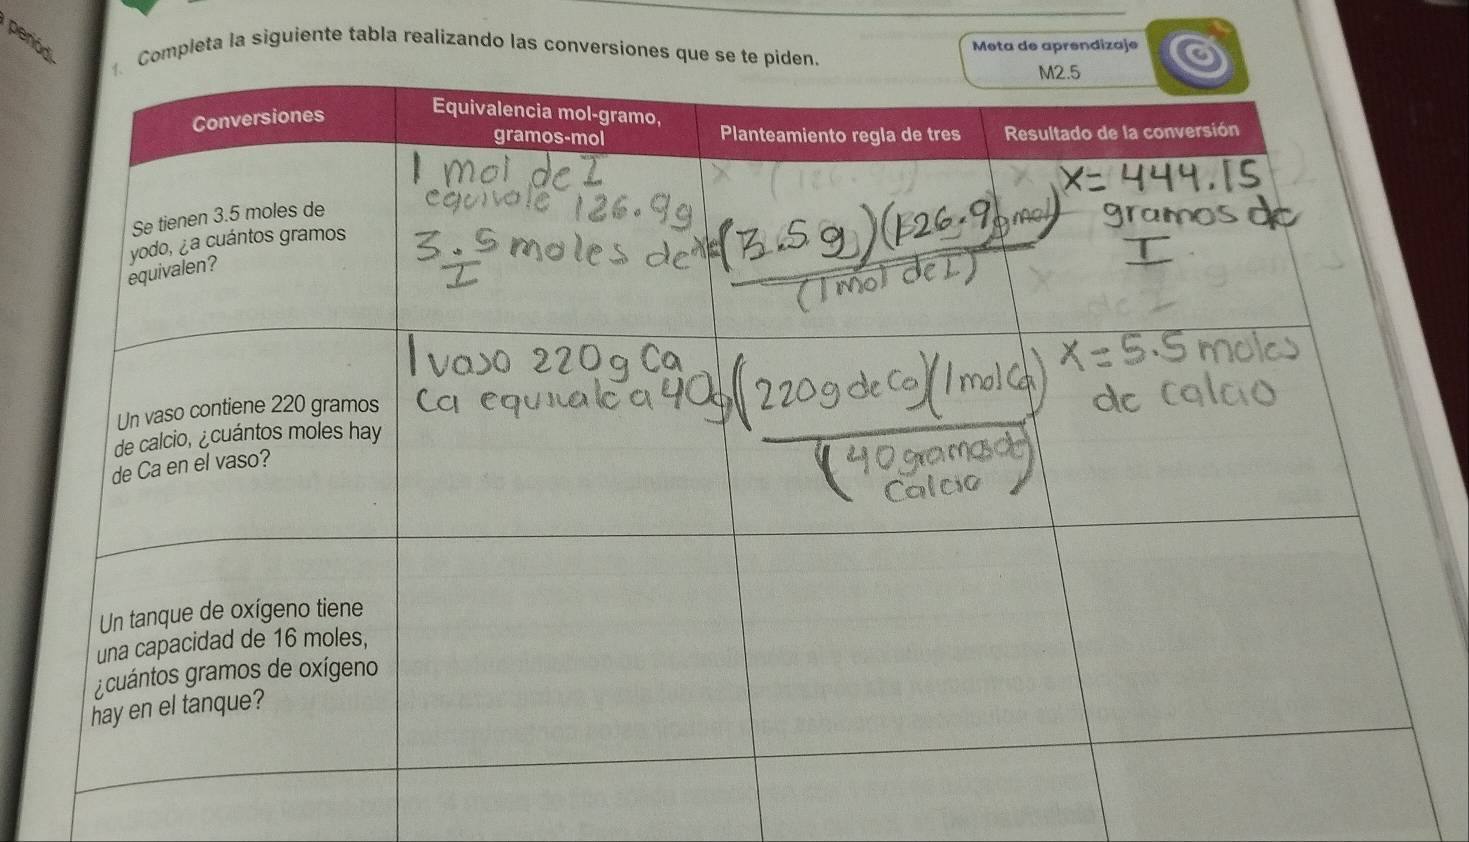 1. Completa la siguiente tabla realizando las conversiones que se te piden.
Meta de aprendizaje
M2.5
Conversiones
Equivalencia mol-gramo,
gramos-mol
Planteamiento regla de tres
Resultado de la conversión
Se tienen 3.5 moles de
yodo, ¿a cuántos gramos
equivalen?
1 mol de I
equivale 126.9g
3.5 moles de
I
(3.5g)(126.9g mol)
(1mol de I)
x=444.15
gramos de
I
Un vaso contiene 220 gramos
de calcio, ¿cuántos moles hay
de Ca en el vaso?
1 vaso 220g Ca
Ca equivale a 40g
(220g de Ca)(1molCa)
(40 gramos de
Calcio)
x=5.5 moles
de calcio
Un tanque de oxígeno tiene
una capacidad de 16 moles,
¿cuántos gramos de oxígeno
hay en el tanque?